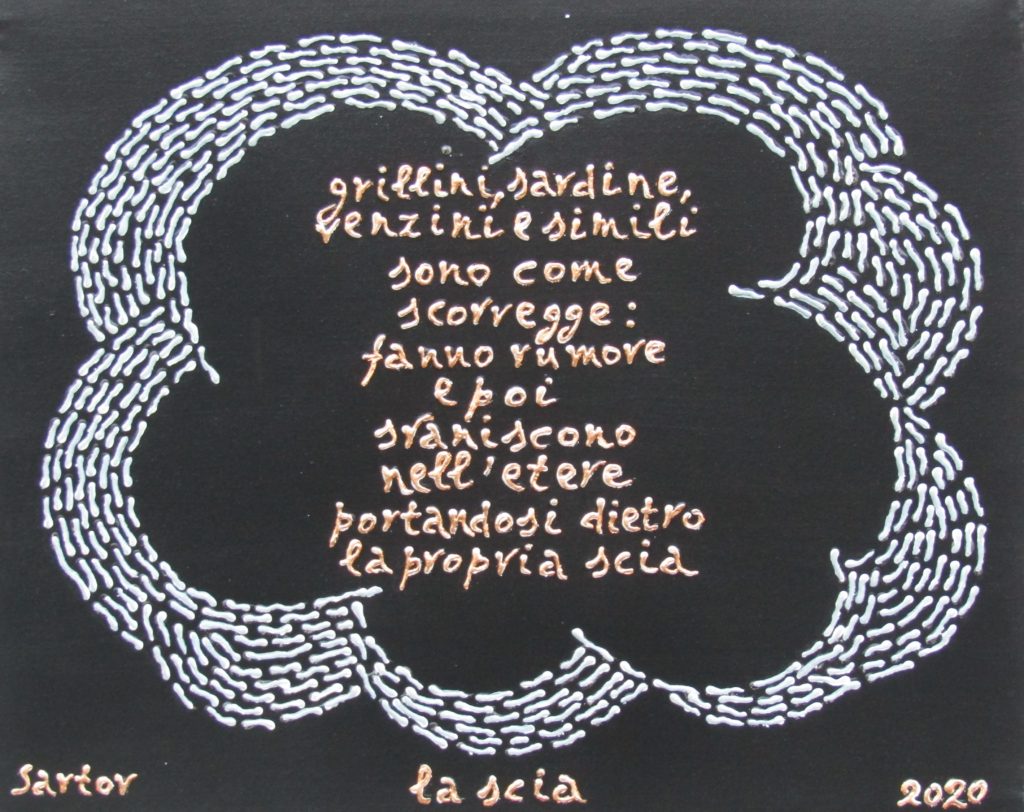 grillini, sardine,
renzini e simili
sono come
scorregge:
fanno rumore
e poi
svaniscono
nell'etere
portandosi dietro
la propria scia
Sartor
la scia
2020